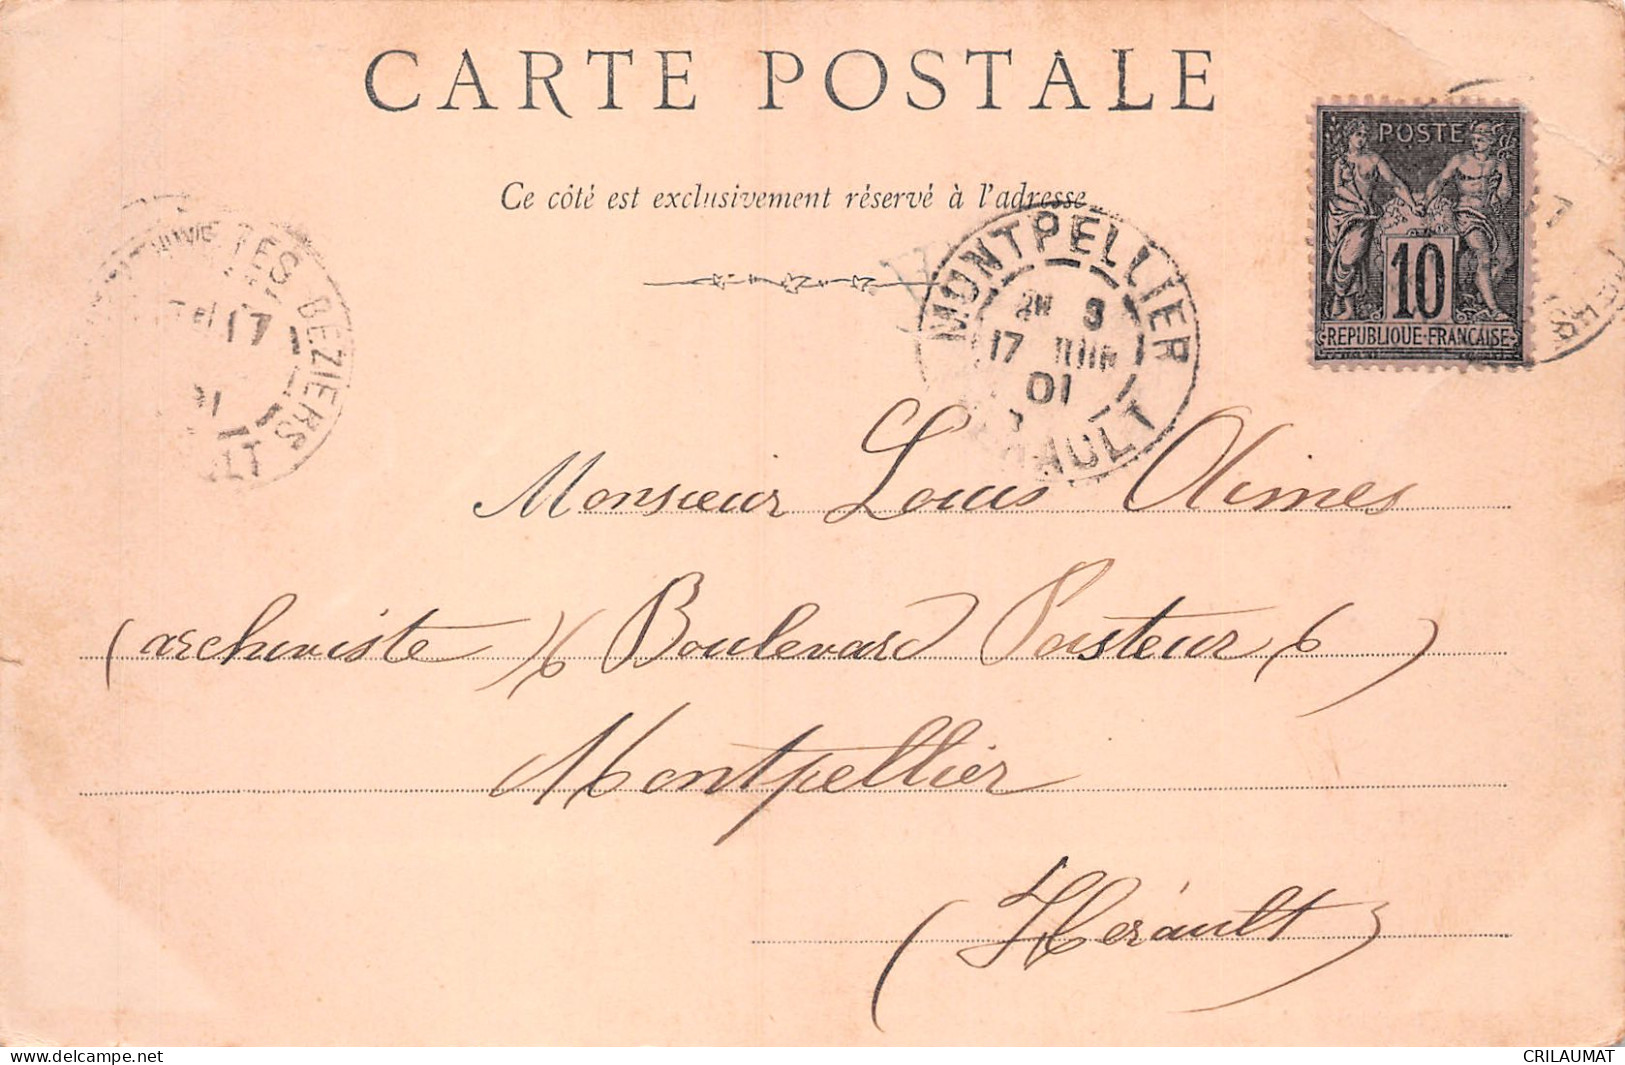 CARTE POSTALE
Ce côté est exclusivement réservé à l'adresse
POSTE
10
REPUBLIQUE FRANÇAISE
MONTPELLIER
17 JUIN
01
HERAULT
BEZIERS
17
Monsieur Louis Olimes
(archiviste) 6 Boulevard Pasteur 6)
Montpellier
(Hérault)
www.delcampe.net
CRILAUMAT